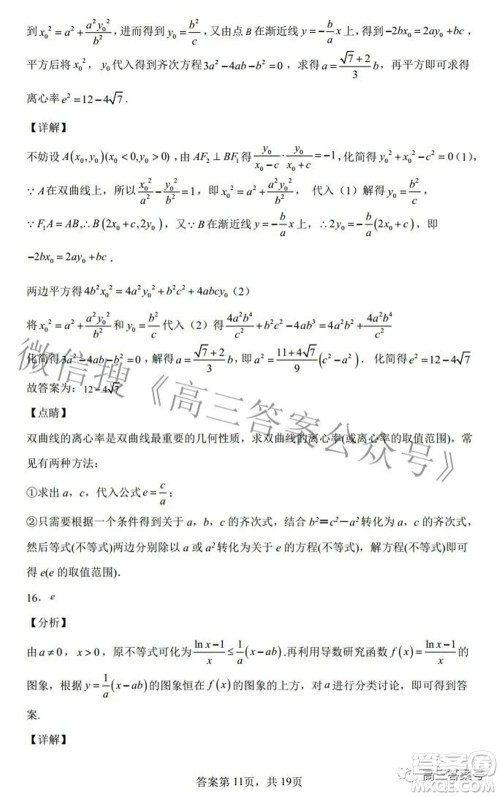 到 x₀² = a² + a²y₀²/b²，进而得到 y₀ = b²/c，又由点 B 在渐近线 y = −(b/a)x 上，得到 −2bx₀ = 2ay₀ + bc，
平方后将 x₀²，y₀ 代入得到齐次方程 3a² − 4ab − b² = 0，求得 a = (√7 + 2)/3 b，再平方即可求得
离心率 e² = 12 − 4√7．
【详解】
不妨设 A(x₀, y₀)(x₀ < 0, y₀ > 0)，由 AF₂ ⊥ BF₁ 得 y₀/(x₀ − c) · y₀/(x₀ + c) = −1，化简得 y₀² + x₀² − c² = 0 (1)，
∵ A 在双曲线上，所以 x₀²/a² − y₀²/b² = 1，即 x₀² = a² + a²y₀²/b²，代入（1）解得 y₀ = b²/c，
∵ F₁A = AB，∴ B(2x₀ + c, 2y₀)，又∵ B 在渐近线 y = −(b/a)x 上，∴ 2y₀ = −(b/a)(2x₀ + c)，即
−2bx₀ = 2ay₀ + bc．
两边平方得 4b²x₀² = 4a²y₀² + b²c² + 4abcy₀（2）
将 x₀² = a² + a²y₀²/b² 和 y₀ = b²/c 代入（2）得 4a²b⁴/c² + b²c² − 4ab³ = 4a²b² + 4a²b⁴/c²
化简得 3a² − 4ab − b² = 0，解得 a = (√7 + 2)/3 b，即 a² = (11 + 4√7)/9 (c² − a²)．化简得 e² = 12 − 4√7
故答案为：12 − 4√7
【点睛】
双曲线的离心率是双曲线最重要的几何性质，求双曲线的离心率(或离心率的取值范围)，常
见有两种方法：
①求出 a，c，代入公式 e = c/a；
②只需要根据一个条件得到关于 a，b，c 的齐次式，结合 b²＝c²－a² 转化为 a，c 的齐次式，
然后等式(不等式)两边分别除以 a 或 a² 转化为关于 e 的方程(不等式)，解方程(不等式)即可
得 e(e 的取值范围).
16．e
【分析】
由 a ≠ 0，x > 0，原不等式可化为 (ln x − 1)/x ≤ 1/a (x − ab).再利用导数研究函数 f(x) = (ln x − 1)/x 的
图象，根据 y = 1/a (x − ab) 的图象恒在 f(x) 的图象的上方，对 a 进行分类讨论，即可得到答
案.
【详解】
答案第 11页，共 19页
微信搜《高三答案公众号》
高三答案号